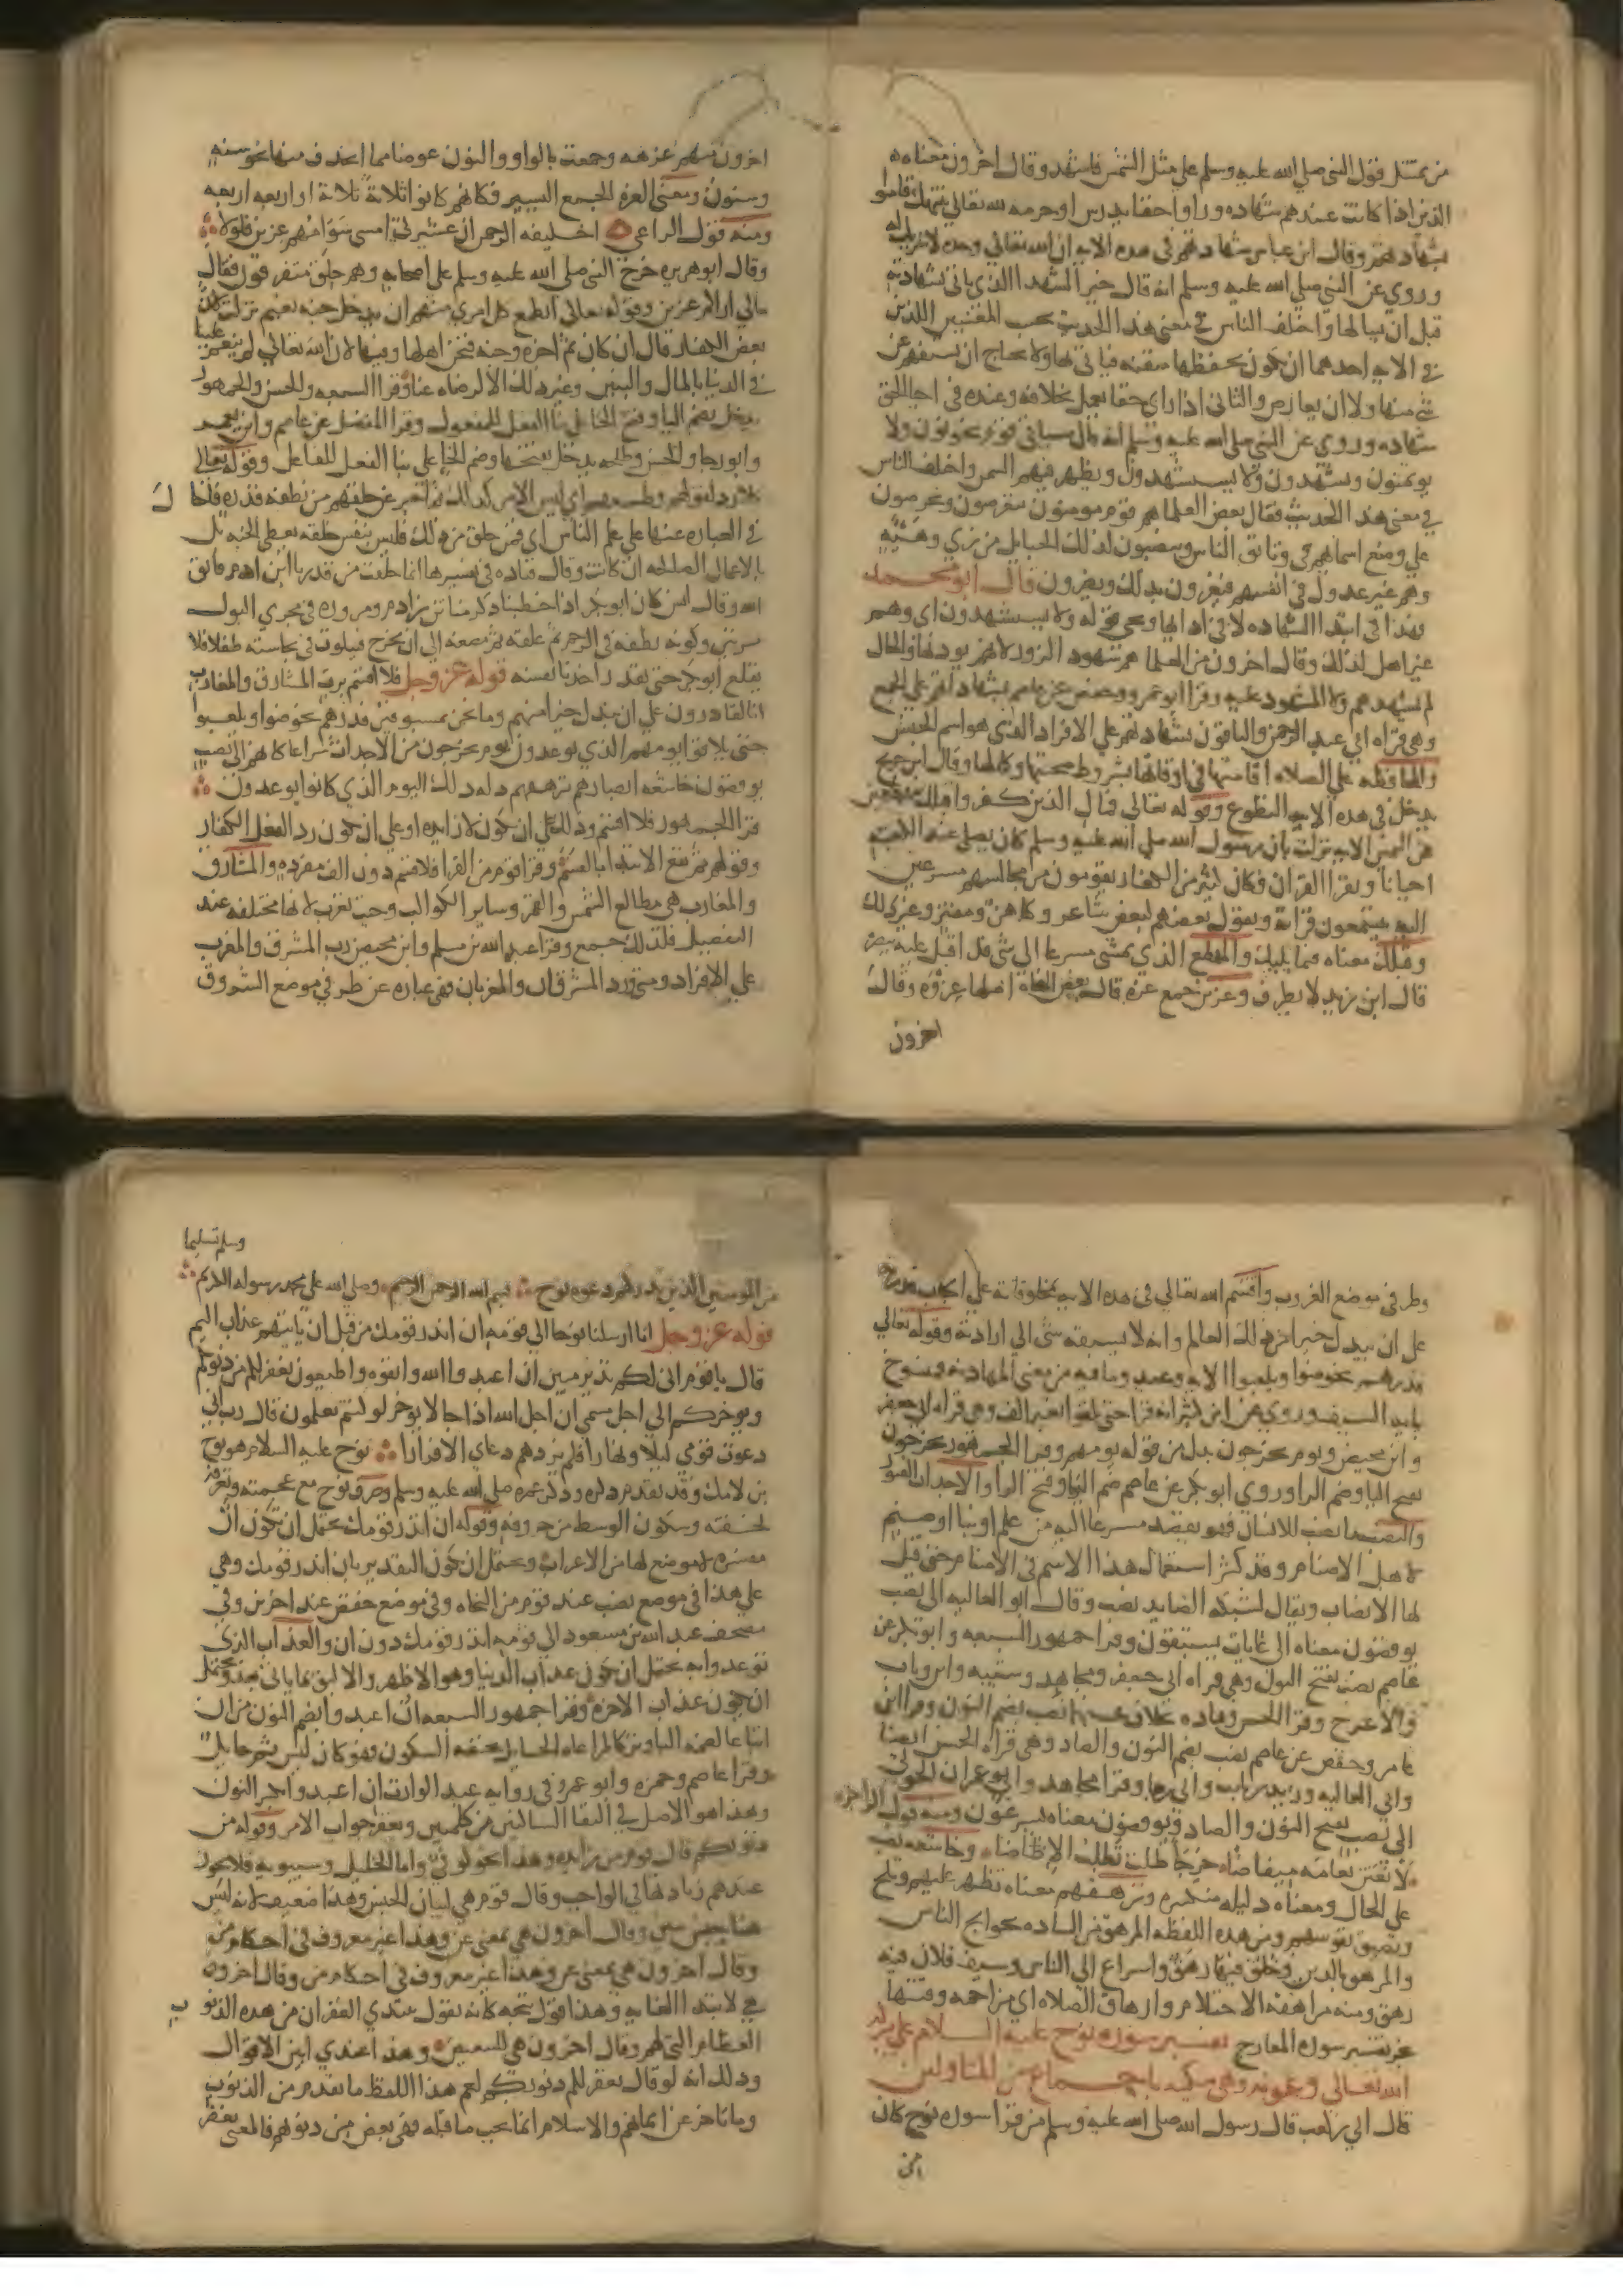 من يمتثل قول النبي صلي الله عليه وسلم علي مثل الشمس فاشهد وقال اخرون معناه
الذين اذا كانت عندهم شهاده وراوا حقا يدرس او حرمه لله تعالي تنتهك قاموا
بشهادتهم وقال ابن عباس شهادتهم في هذه الايه ان الله تعالي وحده لا شريك له
وروي عن النبي صلي الله عليه وسلم انه قال خير الشهدا الذي ياتي بشهادته
قبل ان يسالها واختلف الناس في معني هذا الحديث بحسب المعنيين اللذين
في الايه احدهما ان يكون يحفظها متقنه فياتي بها ولا يحتاج ان يستفهم عن
شي منها ولا ان يعارض والثاني اذا راي حقا يعمل بخلافه وعنده في احيا الحق
شهاده وروي عن النبي صلي الله عليه وسلم انه قال سياتي قوم يخونون ولا
يوتمنون ويشهدون ولا يستشهدون ويظهر فيهم السمن واختلف الناس
في معني هذا الحديث فقال بعض العلما هم قوم مومنون يتعرضون ويحرصون
علي وضع اسمايهم في وثايق الناس وينصبون لذلك الحبايل من زي وهيئه
وهم غير عدول في انفسهم فيغرون بذلك ويضرون قال ابو محمد
فهذا في ابتدا الشهاده لا في ادايها ويجي قوله ولا يستشهدون اي وهم
غير اهل لذلك وقال اخرون من العلما هم شهود الزور لانهم يودونها والحال
لم تشهدهم ولا المشهود عليه وقرا ابو عمرو وحفص عن عاصم بشهاداتهم علي الجمع
وهي قراه ابي عبد الرحمن والباقون بشهادتهم علي الافراد الذي هو اسم الجنس
والمحافظه علي الصلاه اقامتها في اوقاتها بشروط صحتها وكمالها وقال ابن جريج
يدخل في هذه الايه التطوع وقوله تعالي فمال الذين كفروا قبلك مهطعين
الايه نزلت بان رسول الله صلي الله عليه وسلم كان يصلي عند الكعبه
احيانا ويقرا القران فكان كثير من الكفار يقومون من مجالسهم مسرعين
اليه يستمعون قراته ويقول بعضهم لبعض شاعر وكاهن ومفتر وغير ذلك
وقبلك معناه فيما يليك والمهطع الذي يمشي مسرعا الي شي قد اقبل عليه ببصره
قال ابن زيد لا يطرف وعزين جمع عزه قال بعض النحاه اصلها عزوه وقال
اخرون
اخرون اصلها عزهه وجمعت بالواو والنون عوضا مما انحذف منها نحو سنه
وسنون ومعني العزه الجمع اليسير فكانهم كانوا ثلاثة ثلاثة او اربعه اربعه
ومنه قول الراعي اخليفه الرحمن ان عشيرتي امسي سوامهم عزين فلولا
وقال ابو هريره خرج النبي صلي الله عليه وسلم علي اصحابه وهم حلق متفرقون فقال
مالي اراكم عزين وقوله تعالي ايطمع كل امري منهم ان يدخل جنه نعيم نزلت لان
بعض الكفار قال ان كان ثم اخره وجنه فنحن اهلها وفيها لان الله تعالي لم ينعم علينا
في الدنيا بالمال والبنين وغير ذلك الا لرضاه عنا وقرا السبعه والحسن والجمهور
يدخل بضم اليا وفتح الخا علي بنا الفعل للمفعول وقرا المفضل عن عاصم وابن يعمر
وابو رجا والحسن وطلحه يدخل بفتحها وضم الخا علي بنا الفعل للفاعل وقوله تعالي
كلا رد لقولهم وطمعهم اي ليس الامر كذلك ثم اخبر عن خلقهم من نطفه قذره فاحا
ل
في العباره عنها علي علم الناس اي فمن خلق من ذلك فليس بنفس خلقه يعطي الجنه بل
بالاعمال الصالحه ان كانت وقال قتاده في تفسيرها انما خلقت من قذر يا ابن ادم فاتق
الله وقال انس كان ابو بكر اذا خطبنا ذكر مناتن ابن ادم ومروره في مجري البول
مرتين وكونه نطفه في الرحم ثم علقه ثم مضغه الي ان يخرج فيلوث في نجاسته طفلا فلا
يقلع ابو بكر حتي يقذر احدنا نفسه قوله عز وجل فلا اقسم برب المشارق والمغارب
انا لقادرون علي ان نبدل خيرا منهم وما نحن بمسبوقين فذرهم يخوضوا ويلعبوا
حتي يلاقوا يومهم الذي يوعدون يوم يخرجون من الاجداث سراعا كانهم الي نصب
يوفضون خاشعه ابصارهم ترهقهم ذله ذلك اليوم الذي كانوا يوعدون
قرا الجمهور فلا اقسم وذلك علي ان تكون لا زايده او علي ان تكون رد الفعل الكفار
وقولهم ثم يقع الابتدا بالقسم وقرا قوم من القرا فلاقسم دون الف مفرده والمشارق
والمغارب هي مطالع الشمس والقمر وساير الكواكب وحيث تغرب لانها مختلفه عند
التفصيل فلذلك جمع وقرا عبد الله بن مسلم وابن محيصن رب المشرق والمغرب
علي الافراد ومتي ورد المشرقان والمغربان فهي عباره عن طرفي موضع الشروق
وطرفي موضع الغروب واقسم الله تعالي في هذه الايه بمخلوقاته علي ايجاب قدرته
علي ان يبدل خيرا من ذلك العالم وانه لا يسبقه شي الي ارادته وقوله تعالي
فذرهم يخوضوا ويلعبوا الايه وعيد وما فيه من معني المهادنه فمنسوخ
بايه السيف وروي عن ابن كثير انه قرا حتي يلقوا بغير الف وهي قراه ابي جعفر
وابن محيصن ويوم يخرجون بدل من قوله يومهم وقرا الجمهور يخرجون
بفتح اليا وضم الرا وروي ابو بكر عن عاصم ضم اليا وفتح الرا والاجداث القبور
والنصب ما نصب للانسان فهو يقصد مسرعا اليه من علم او بنا او صنم
لاهل الاصنام وقد كثر استعمال هذا الاسم في الاصنام حتي قيل
لها الانصاب ويقال لشبكه الصايد نصب وقال ابو العاليه الي نصب
يوفضون معناه الي غايات يستبقون وقرا جمهور السبعه وابو بكر عن
عاصم نصب بفتح النون وهي قراه ابي جعفر ومجاهد وشيبه وابن وثاب
والاعرج وقرا الحسن وقتاده بخلاف عنهما نصب بضم النون وقرا ابن
عامر وحفص عن عاصم نصب بضم النون والصاد وهي قراه الحسن ايضا
وابي العاليه وزيد بن ثابت وابي رجا وقرا مجاهد وابو عمران الجوني
الي نصب بفتح النون والصاد ويوفضون معناه يسرعون ومنه قول الراجز
لأنعتن نعامه ميفاضا خرجا ظلت تطلب الإضاضا وخاشعه نصب
علي الحال ومعناه ذليله منكسره وترهقهم معناه تظهر عليهم وتلح
وتضيق نفوسهم ومن هذه اللفظه المرهق من الساده بحوايج الناس
والمرهق بالدين وخلق فيها رهق واسراع الي الناس وسيف فلان فيه
رهق ومنه مراهقه الاحتلام وارهاق الصلاه اي مزاحمه وقتها
نجز تفسير سوره المعارج تفسير سوره نوح عليه السلام علي بركه
الله تعالي وعونه وهي مكيه باجماع من المتاولين
قال ابي بن كعب قال رسول الله صلي الله عليه وسلم من قرا سوره نوح كان
من
وسلم تسليما
من المومنين الذين تدركهم دعوه نوح بسم الله الرحمن الرحيم وصلي الله علي محمد رسوله الكريم
قوله عز وجل انا ارسلنا نوحا الي قومه ان انذر قومك من قبل ان ياتيهم عذاب اليم
قال يا قوم اني لكم نذير مبين ان اعبدوا الله واتقوه واطيعون يغفر لكم من ذنوبكم
ويوخركم الي اجل مسمي ان اجل الله اذا جا لا يوخر لو كنتم تعلمون قال رب اني
دعوت قومي ليلا ونهارا فلم يزدهم دعاي الا فرارا نوح عليه السلام هو نوح
بن لامك وقد تقدم ذكره وذكر عمره صلي الله عليه وسلم وصرف نوح مع عجمته وتعرفه
لخفته وسكون الوسط من حروفه وقوله ان انذر قومك يحتمل ان تكون ان
مفسره لا موضع لها من الاعراب ويحتمل ان تكون التقدير بان انذر قومك وهي
علي هذا في موضع نصب عند قوم من النحاه وفي موضع خفض عند اخرين وفي
مصحف عبد الله بن مسعود الي قومه انذر قومك دون ان والعذاب الذي
توعدوا به يحتمل ان يكون عذاب الدنيا وهو الاظهر والاليق بما ياتي بعد ويحتمل
ان يكون عذاب الاخره وقرا جمهور السبعه ان اعبدوا بضم النون من ان
اتباعا لضمه البا وتركا لمراعاه الحايل لخفه السكون فهو كان ليس ثم حايل
وقرا عاصم وحمزه وابو عمرو في روايه عبد الوارث ان اعبدوا بكسر النون
وهذا هو الاصل في التقا الساكنين من كلمتين ويغفر جواب الامر وقوله من
ذنوبكم قال قوم من زايده وهذا نحو كوفي واما الخليل وسيبويه فلا يجوز
عندهم زيادتها في الواجب وقال قوم هي لبيان الجنس وهذا ضعيف لانه ليس
هنا جنس يبين وقال اخرون هي بمعني عن وهذا غير معروف في احكام من
وقال اخرون هي بمعني عن وهذا غير معروف في احكام من وقال اخرون
هي لابتدا الغايه وهذا قول يتجه كانه يقول يبتدي الغفران من هذه الذنوب
ب
العظام التي لهم وقال اخرون هي للتبعيض وهذا عندي ابين الاقوال
وذلك انه لو قال يغفر لكم ذنوبكم لعم هذا اللفظ ما تقدم من الذنوب
وما تاخر عن ايمانهم والاسلام انما يجب ما قبله فهي بعض من ذنوبهم فالمعني يغفر